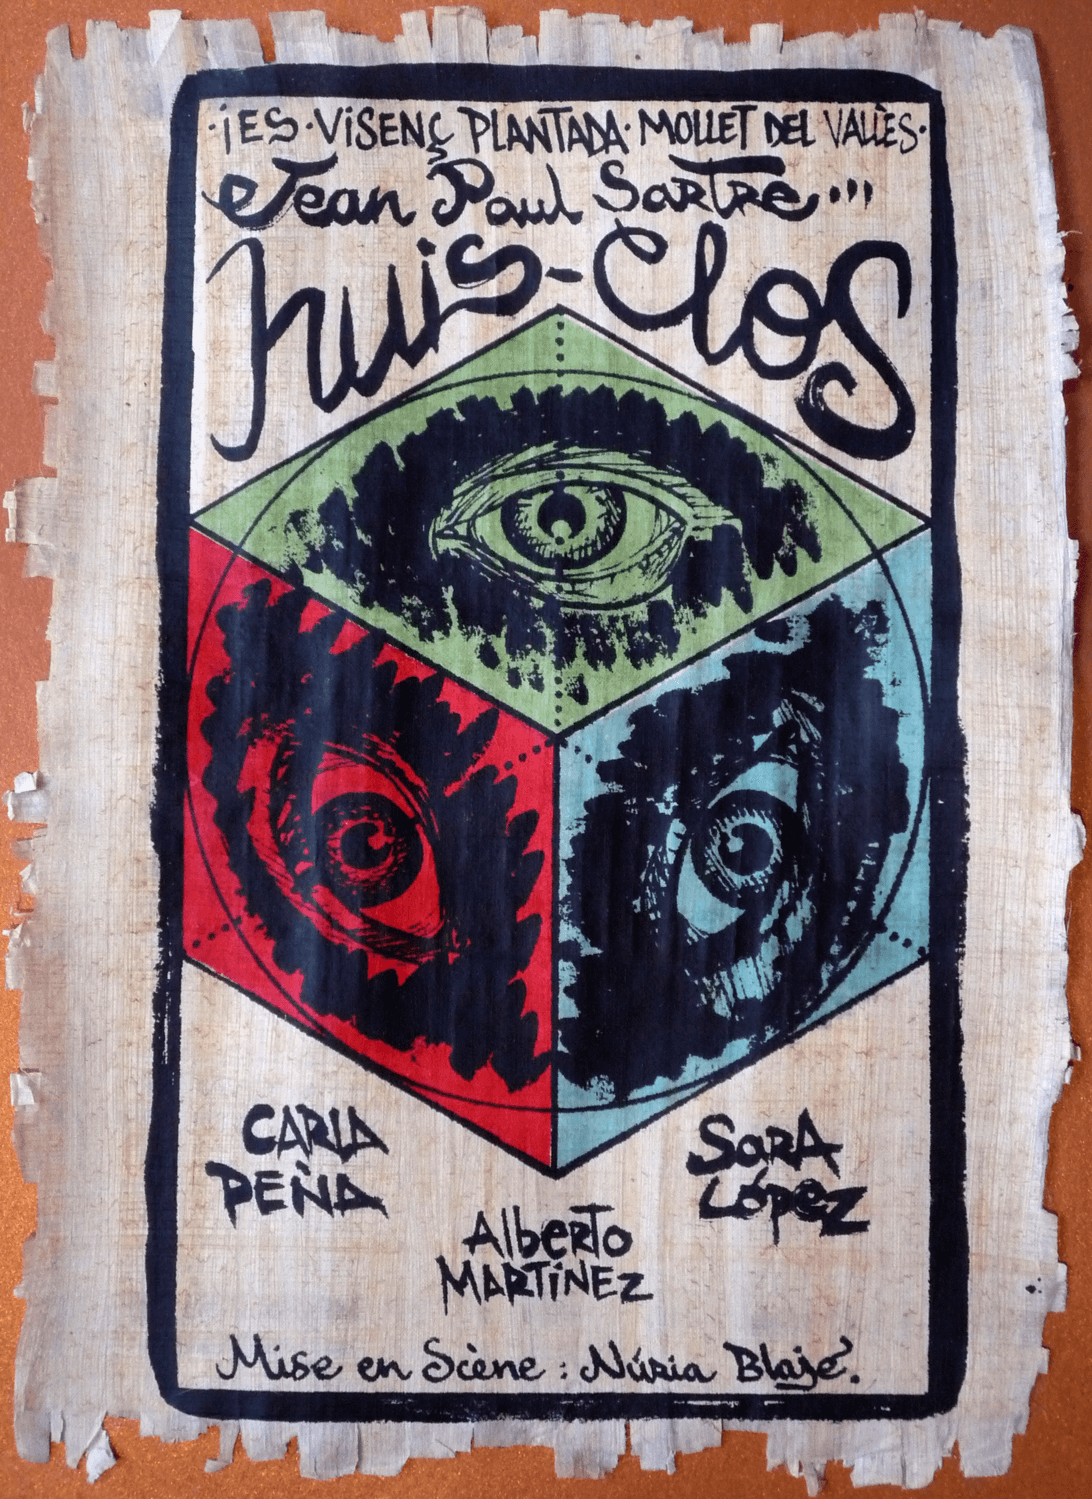 ·iES·ViSENÇ PLANTADA·MOLLET DEL VALLÈS·
Jean Paul Sartre...
huis-Clos
CARLA
PEÑA
Sara
López
Alberto
MARTiNEZ
Mise en Scène : Núria Blajé.